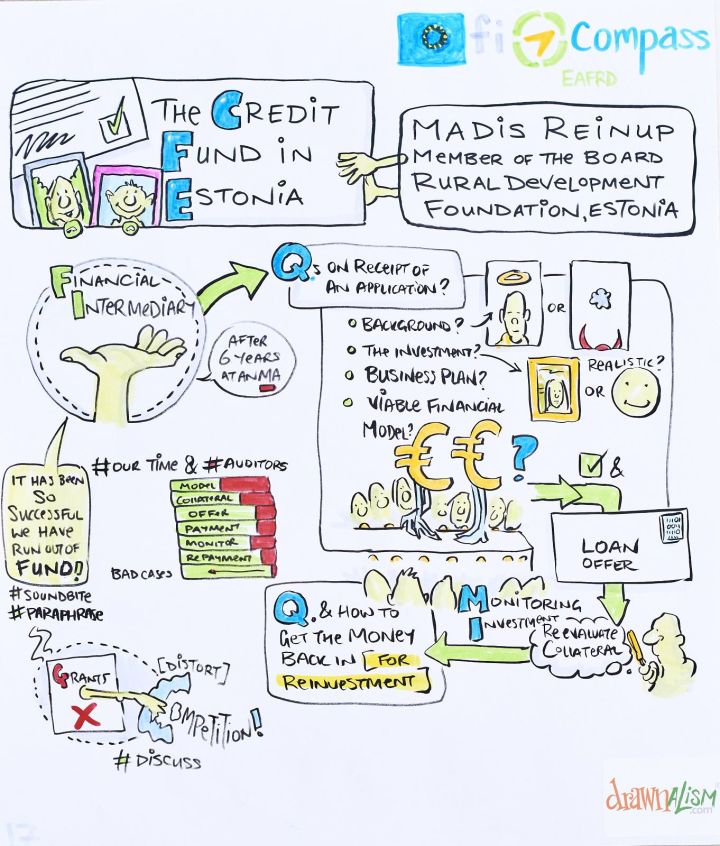 fi Compass
EAFRD
THE CREDIT
FUND IN
ESTONIA
MADIS REINUP
MEMBER OF THE BOARD
RURAL DEVELOPMENT
FOUNDATION, ESTONIA
FINANCIAL
INTERMEDIARY
AFTER
6 YEARS
AT AN MA
Qs ON RECEIPT OF
AN APPLICATION?
BACKGROUND?
OR
THE INVESTMENT?
REALISTIC?
BUSINESS PLAN?
OR
VIABLE FINANCIAL
MODEL?
€ € ?
&
LOAN
OFFER
IT HAS BEEN
SO
SUCCESSFUL
WE HAVE
RUN OUT OF
FUND!
#SOUNDBITE
#PARAPHRASE
#OUR TIME & #AUDITORS
MODEL
COLLATERAL
OFFER
PAYMENT
MONITOR
REPAYMENT
BAD CASES
MONITORING
INVESTMENT
RE EVALUATE
COLLATERAL
Q. & HOW TO
GET THE MONEY
BACK IN [FOR
REINVESTMENT]
GRANTS
X
[DISTORT]
OMPETITION!
#DISCUSS
drawnALISM
.com